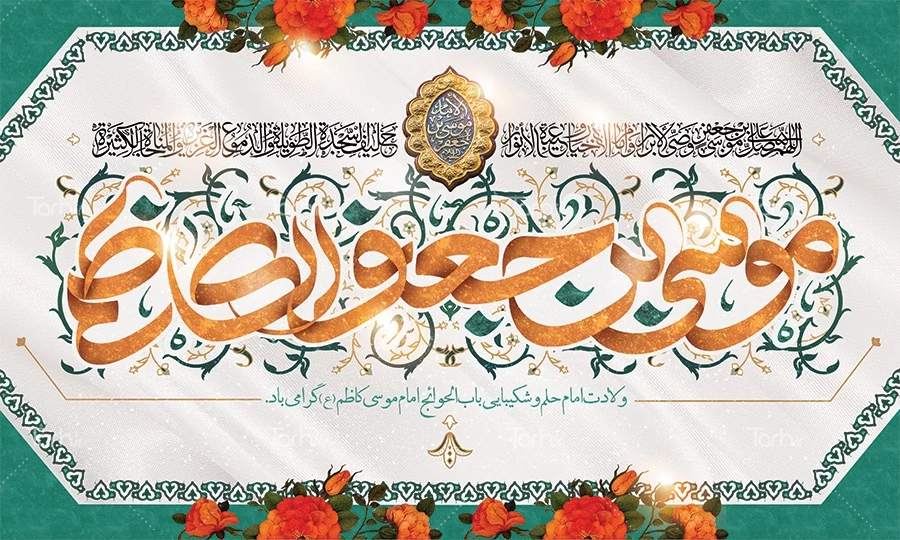 الإمام
موسی بن
جعفر
اللهم صل علی موسی بن جعفر وصی الأبرار و إمام الأخیار و عیبة الأنوار
حلیف السجدة الطویلة و الدموع الغزیرة و المناجاة الکثیرة
موسی بن جعفر الکاظم
ولادت امام حلم و شکیبایی باب الحوائج امام موسی کاظم (ع) گرامی باد.